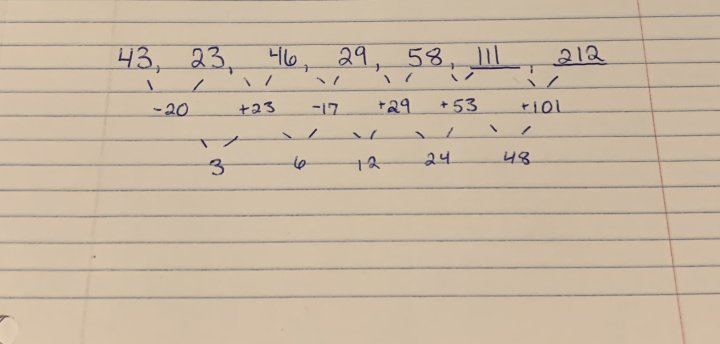 43, 23, 46, 29, 58, 111, 212
-20 +23 -17 +29 +53 +101
3 6 12 24 48